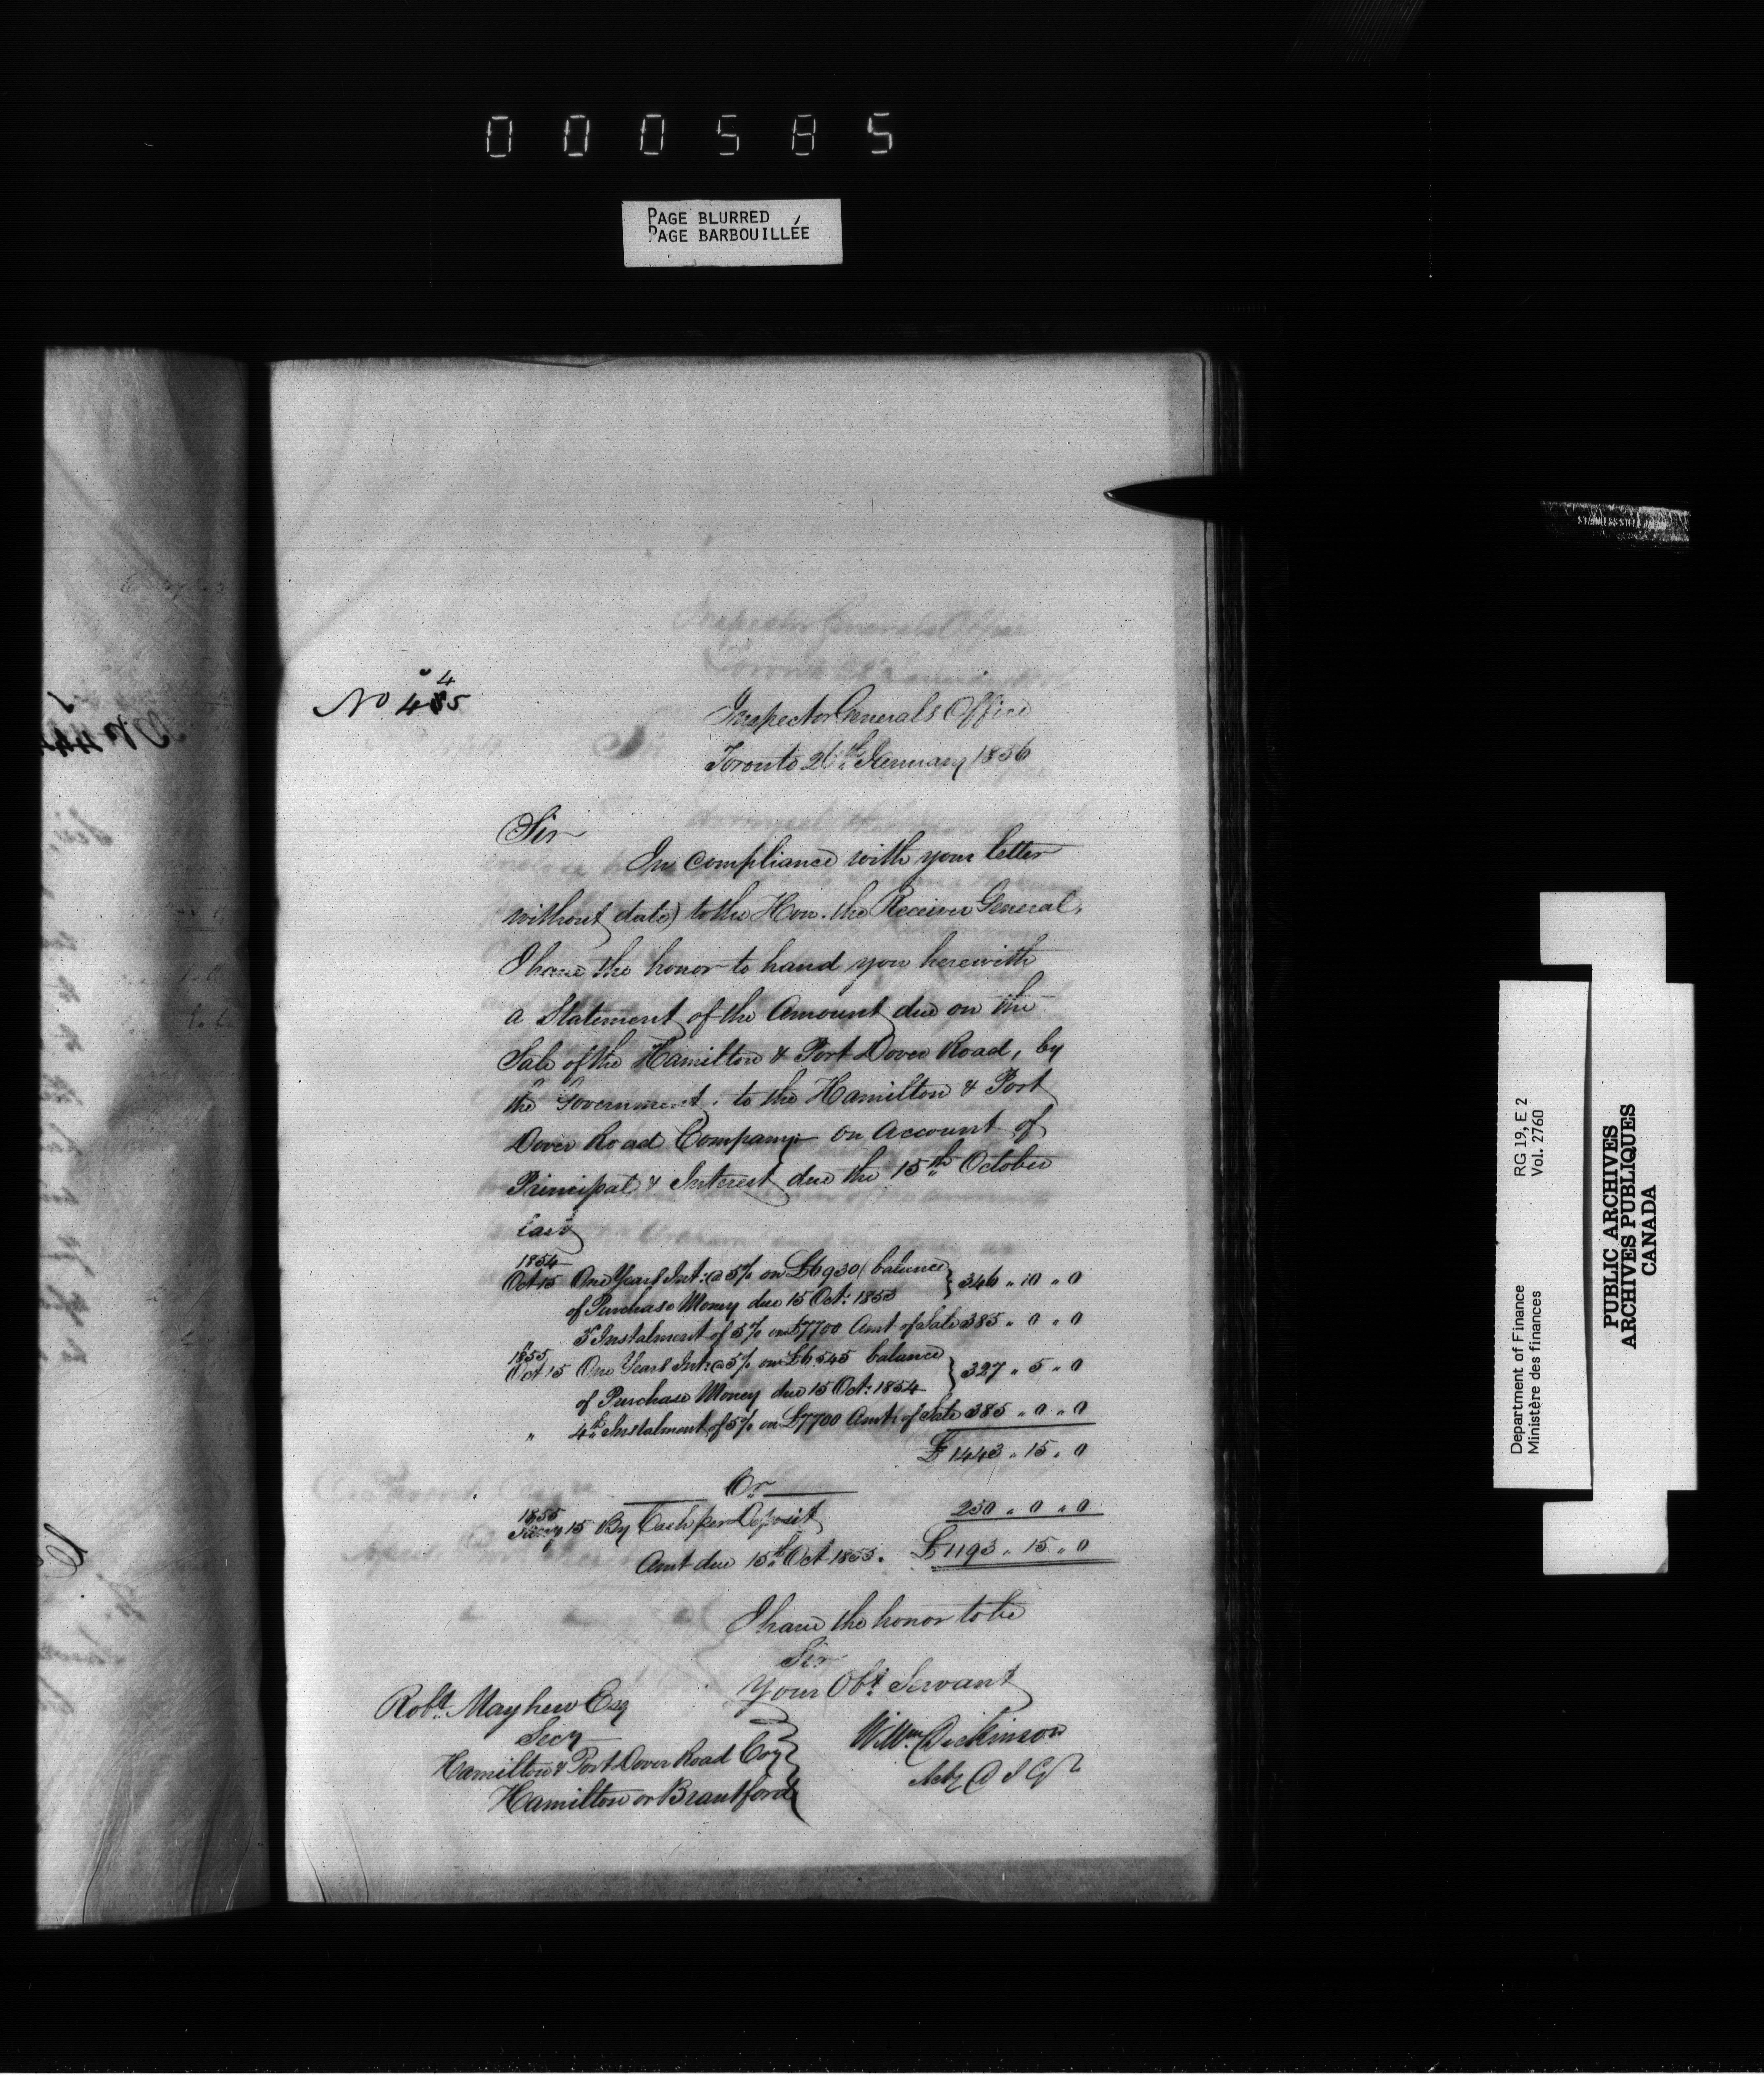 000585
PAGE BLURRED
PAGE BARBOUILLÉE
No 485
4
Inspector Generals Office
Toronto 26th January 1856
Sir
In compliance with your letter
without date) to the Hon. the Receiver General,
I have the honor to hand you herewith
a Statement of the Amount due on the
Sale of the Hamilton & Port Dover Road, by
the Government, to the Hamilton & Port
Dover Road Company on Account of
Principal & Interest due the 15th October
last
1854
Oct 15 One Years Int: @ 5% on £6930 balance
of Purchase Money due 15 Oct: 1853 } 346 " 10 " 0
" 3d Instalment of 5% on £7700 Amt of Sale 385 " 0 " 0
1855
Oct 15 One Years Int: @ 5% on £6545 balance
of Purchase Money due 15 Oct: 1854 } 327 " 5 " 0
" 4th Instalment of 5% on £7700 Amt of Sale 385 " 0 " 0
£1443 " 15 " 0
Cr
1855
15 By Cash per Deposit 250 " 0 " 0
Amt due 15th Oct 1855. £1193 " 15 " 0
I have the honor to be
Sir
Your Obt Servant
Wm Dickinson
Actg D I Gl
Robt Mayhew Esq
Secy
Hamilton & Port Dover Road Coy
Hamilton or Brantford
STAINLESS STEEL JAPAN
Department of Finance RG 19, E 2
Ministère des finances Vol. 2760
PUBLIC ARCHIVES
ARCHIVES PUBLIQUES
CANADA